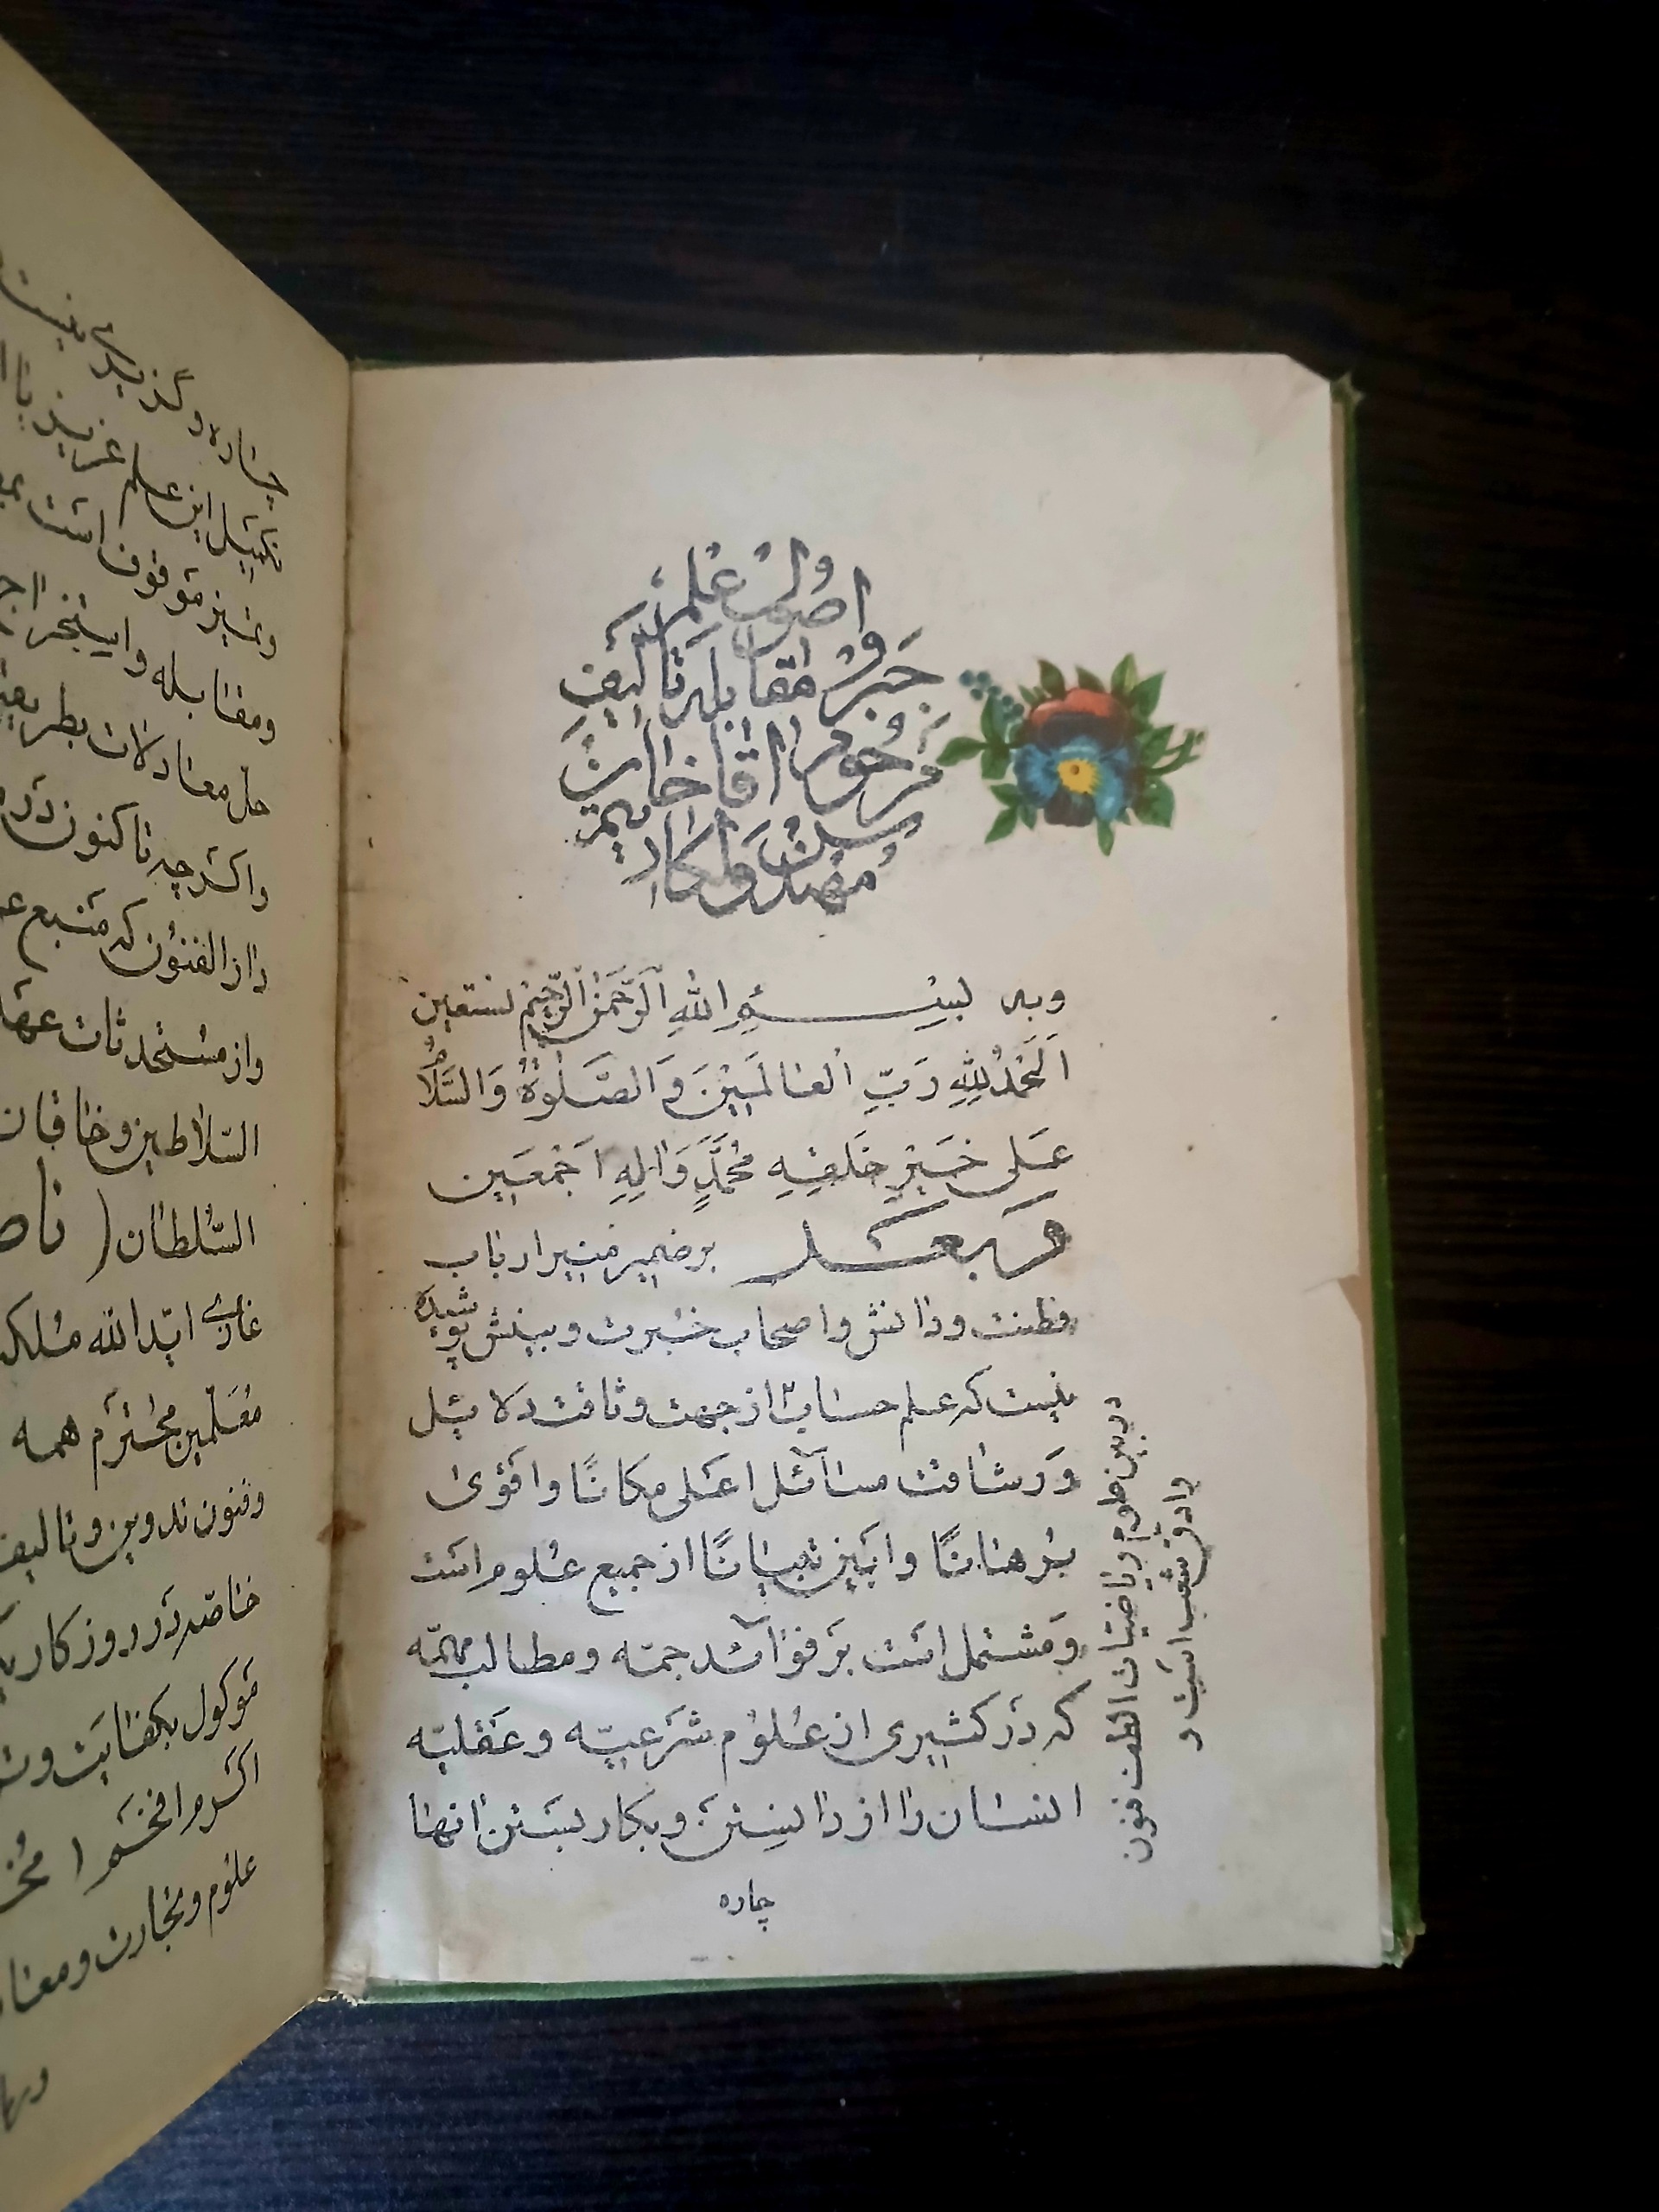 اصول علم
جبر و مقابله تألیف
مقرب الخاقان
مهندس
وبه بسم الله الرحمن الرحیم نستعین
اَلحَمدُ لِلّٰهِ رَبِّ العٰالَمَینَ وَ الصَّلٰوةُ وَ السَّلٰامُ
عَلی خَیرِ خَلقِهِ مُحَمَّدٍ وَالِهِ اَجمَعَین
وَبعَد برضمیر منیر ارباب
فطنت و دانش و اصحاب خبرت و بینش پوشیده
نیست که علم حساب از جهت وثاقت دلایل
وَ رشاقت مسآئل اعَلی مکانًا و اقوٰی
برُهٰانًا و ابَین تبیانًا از جمیع علوم است
وَ مشتمل است بَر فوٰآئد جمّه و مطالب مهمّه
که دَر کثیری از عُلوُم شَرعیّه و عَقلیّه
انسان را از دانستن و بکار بستن انها
چاره
در بین علوم ریاضیات الطف فنون
و ادق شعب است و
چاره و گزیری نیست
تکمیل این علم عزیز با
و نیز موقوف است
و مقابله و استخراج
حلّ معادلات بطریق
و اگر چه تاکنون در
دار الفنون که منبع
و از مستحدثات عهد
السّلاطین و خاقان
السّلطان ( ناص
غازی ایّد الله ملکه
معلّمین محترم همه
و فنون تدوین و تالیف
خاصّه در روزگار
موکول بکفایت و
اکرم افخم
علوم و تجارت و معا